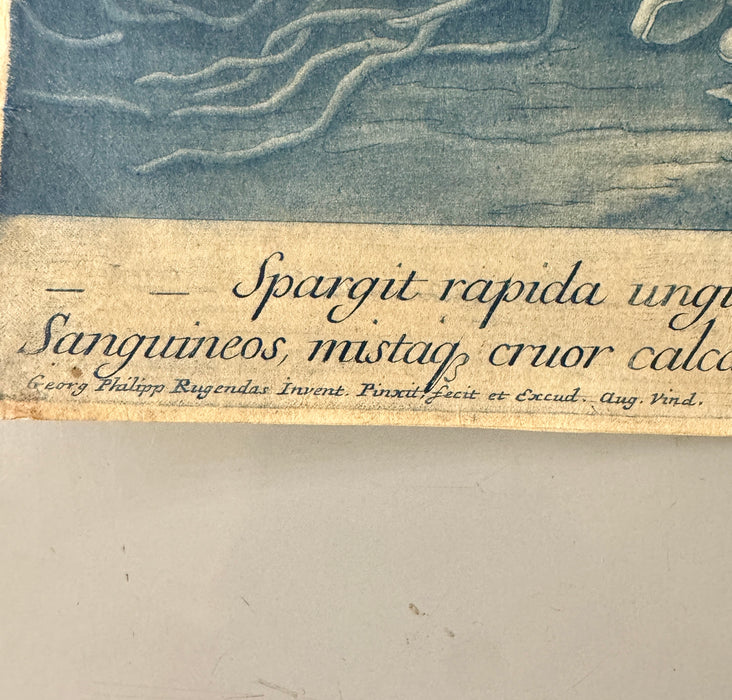 — — Spargit rapida ungu
Sanguineos, mistaqꝫ cruor calca
Georg Philipp Rugendas Invent. Pinxit, fecit et Excud. Aug. Vind.